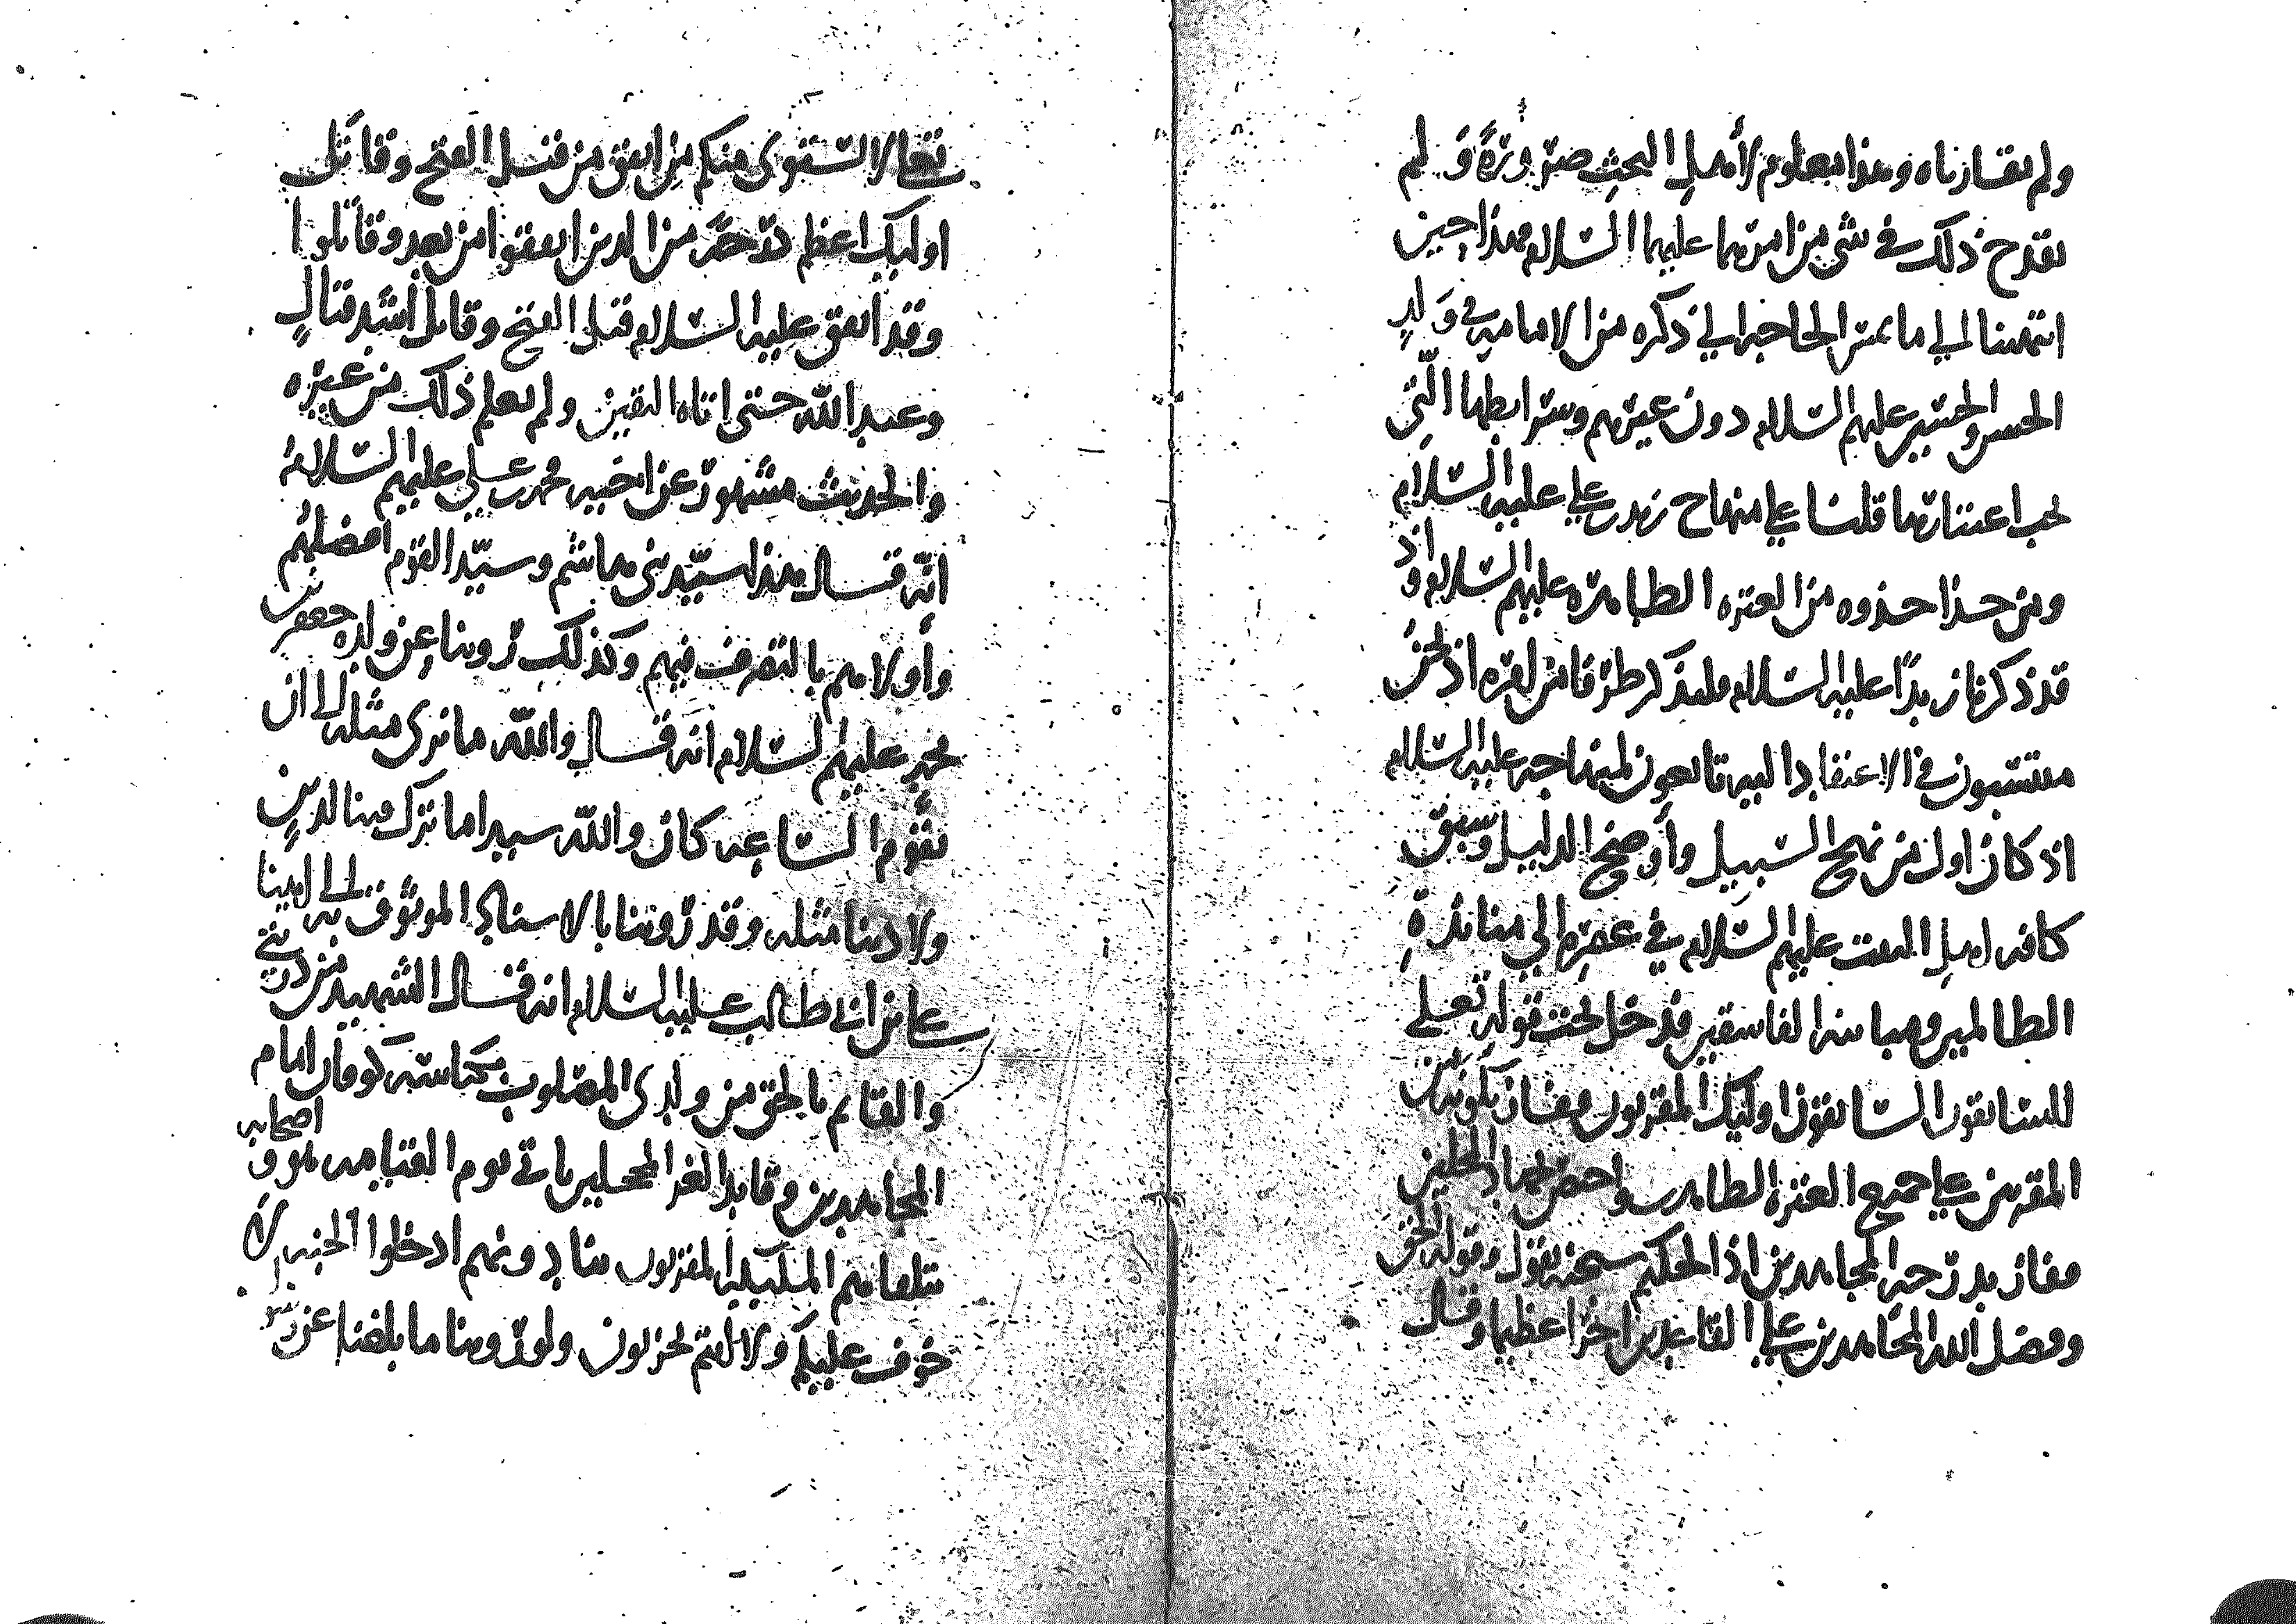 ولم يقارناه وهذا معلوم لأهل البحث ضرورةً و لم
يقدح ذلك في شي من امرهما عليهما السلام فهذا حين
انتهينا إلى ما تمس الحاجة إلى ذكره من الامامة في ولد
الحسن والحسين عليهم السلام دون غيرهم وشرايطها التي
يجب اعتبارها قلنا على منهاج زيد بن علي عليه السلام
ومن حذا حذوه من العترة الطاهرة عليهم السلام واذ
قد ذكرنا زيدًا عليه السلام فلنذكر طرفا من امره اذ نحن
منتسبون في الاعتقاد اليه تابعون لمنهاجه عليه السلام
اذ كان اول من نهج السبيل وأوضح الدليل وسبق
كافة اهل البيت عليهم السلام في عصره إلى منابذة
الظالمين ومباينة الفاسقين فدخل تحت قوله تعلى
السابقون السابقون اوليك المقربون ففاز بكونه من
المقربين على جميع العترة الطاهرة
ففاز بدرجة المجاهدين اذ الحكيم سبحنه يقول وقوله الحق
وفضل الله المجاهدين على القاعدين اجرا عظيما وقال
تعالى لا يستوي منكم من انفق من قبل الفتح وقاتل
اوليك اعظم درجة من الذين انفقوا من بعد وقاتلوا
وقد أنفق عليه السلام قبل الفتح وقاتل أشد قتال
وعبد الله حتى اتاه اليقين ولم يعلم ذلك من غيره
والحديث مشهور عن اخيه محمد بن علي عليهم السلام
انّه قال هذا سيّد بني هاشم وسيّد القوم افضلهم
وأولاهم بالتصرف فيهم وكذلك روينا عن ولده جعفر بن
محمد عليهم السلام انه قال والله ما نرى مثله إلى ان
تقوم الساعة كان والله سيدا ما ترك فينا لدين
ولا دنيا مثله وقد روينا بالاسناد الموثوق به إلى ابينا
علي بن ابي طالب عليه السلام انه قال الشهيد من ذريتي
والقائم بالحق من ولدي المصلوب بكناسة كوفان امام
المجاهدين وقايد الغر المحجلين ياتي يوم القيامة هو و اصحابه
تتلقاهم المليكة المقربون ينادونهم ادخلوا الجنة لا
خوف عليكم ولا أنتم تحزنون ولو روينا ما بلغنا عن